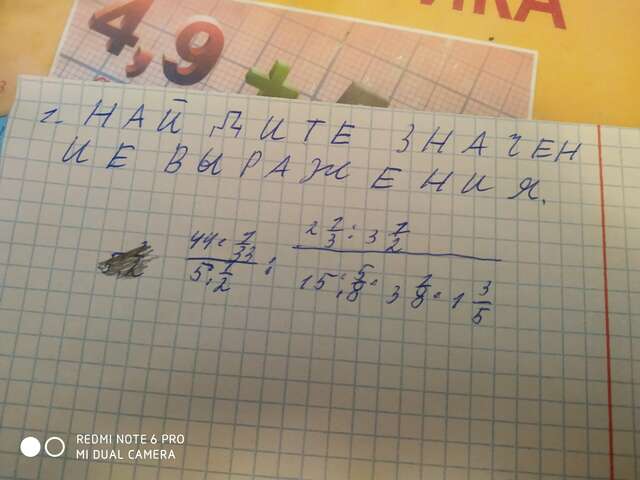 ИКА
4,9 +
1. НАЙДИТЕ ЗНАЧЕН
ИЕ ВЫРАЖЕНИЯ.
44 · 1/33 / 5 : 1/2 : 2 1/3 : 3 1/2 / 15 : 5/8 · 3 1/8 · 1 3/5
REDMI NOTE 6 PRO
MI DUAL CAMERA